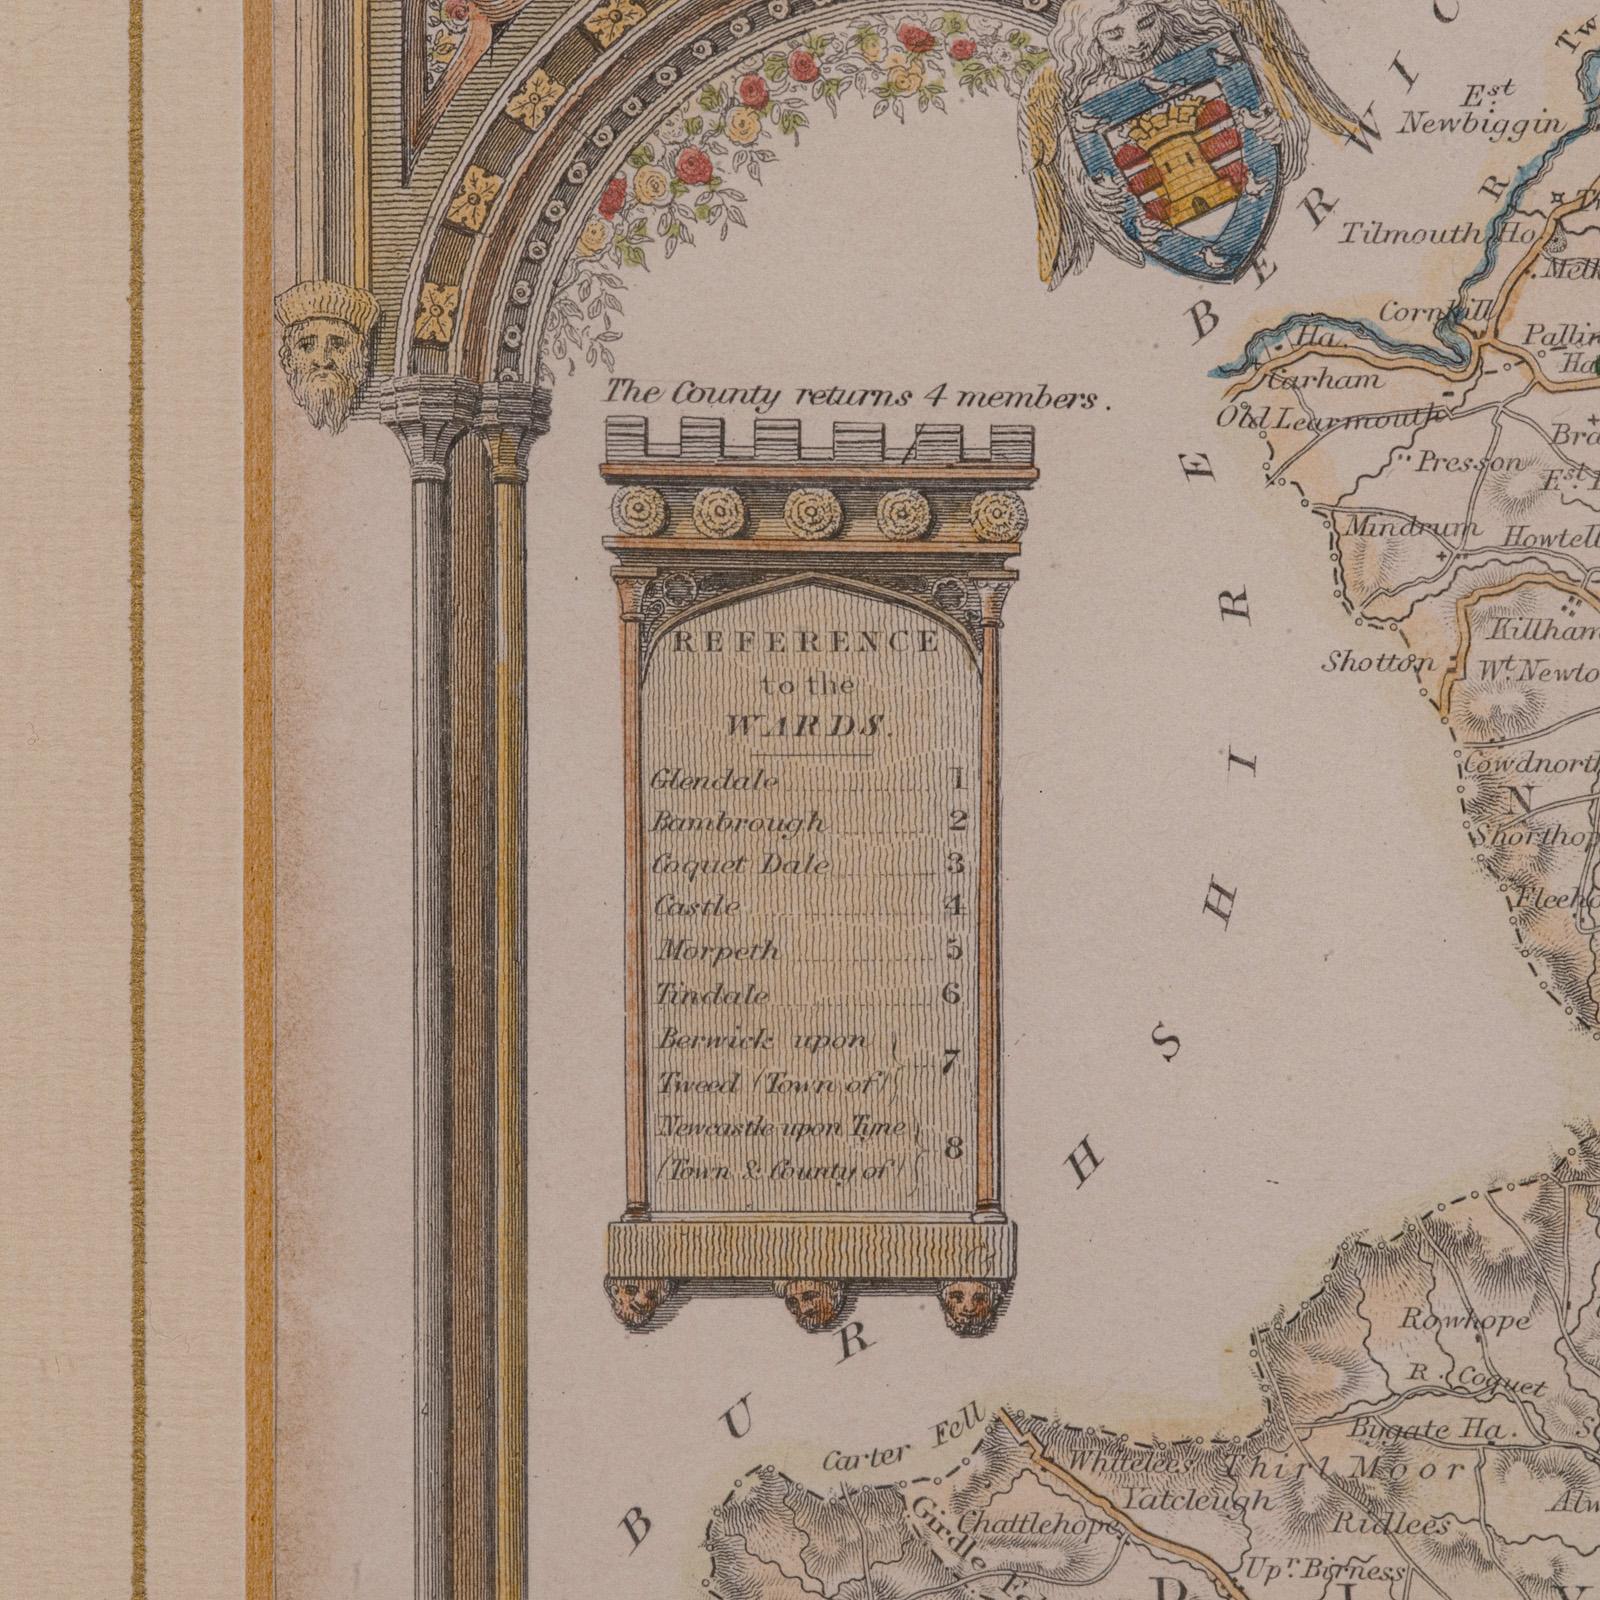 The County returns 4 members.
REFERENCE
to the
WARDS.
Glendale 1
Bambrough 2
Coquet Dale 3
Castle 4
Morpeth 5
Tindale 6
Berwick upon
Tweed (Town of) 7
Newcastle upon Tyne
(Town & County of) 8
BERWIC
BERE
SHIRE
ROXBURGH
Est
Newbiggin
R
Tilmouth Ho.
Cornhill
Ha.
Carham
Old Learmouth
Presson
Mindrum
Howtell
Killham
Shotton
Wt. Newto
Cowdnorth
N
Shorthop
Fleeho
Rowhope
R. Coquet
Bygate Ha.
Carter Fell
Whitelees
Thirl Moor
Yatcleugh
Chattlehope
Ridlees
Girdle
Upr. Birness